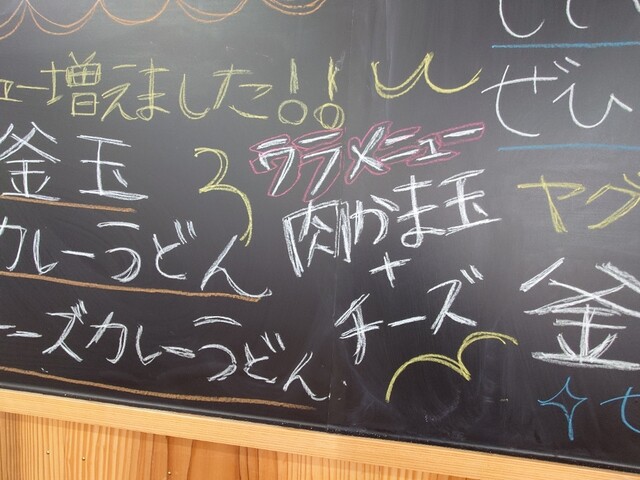 ュー増えました!!
釜玉
カレーうどん
チーズカレーうどん
ウラメニュー
肉かま玉
+
チーズ
ぜひ
ヤグ
釜